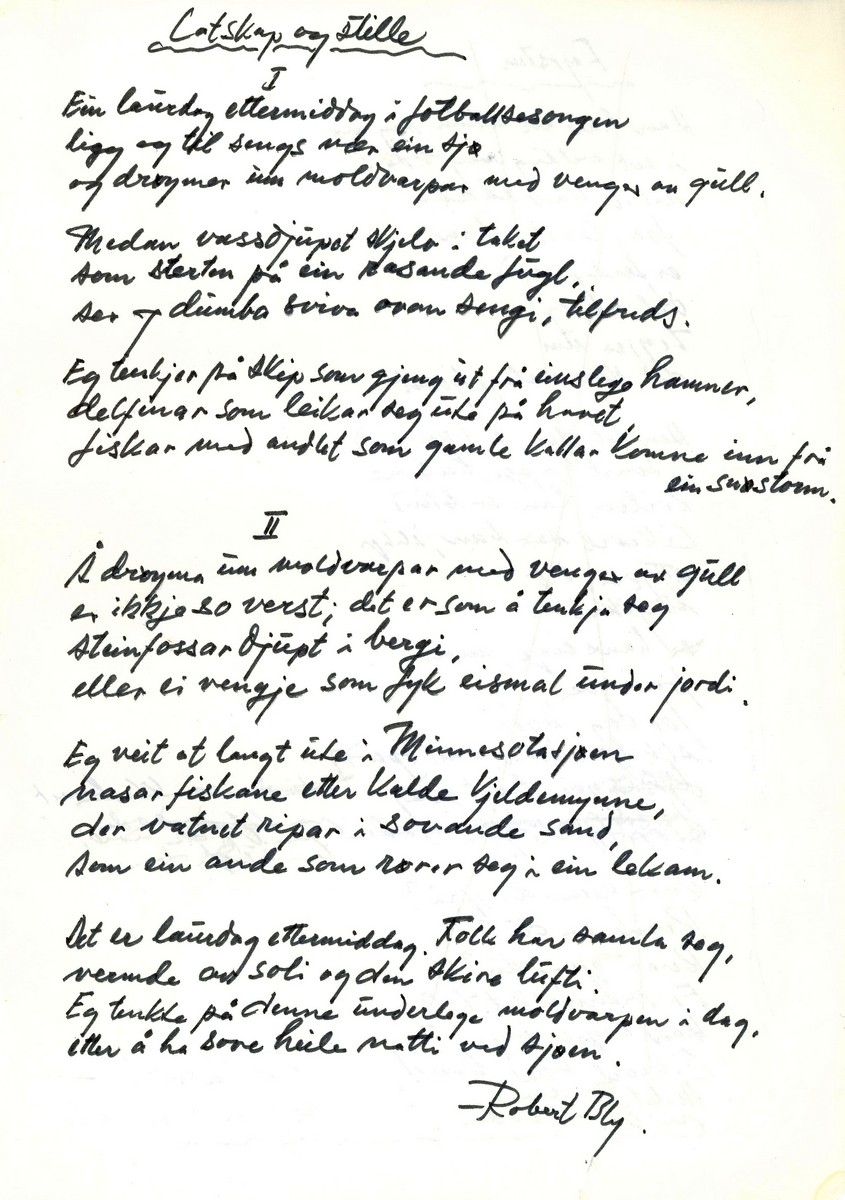 Latskap og stille
I
Ein laurdag ettermiddag i fotballsesongen
ligg eg til sengs nær ein sjø
og drøymer um moldvarpar med vengjer av gull.
Medan vassdjupet skjelv i taket
som sterten på ein rasande fugl,
ser eg dumba sviva ovan sengi, tilfreds.
Eg tenkjer på skip som gjeng ut frå einslege hamner,
delfinar som leikar seg ute på havet,
fiskar med andlet som gamle kallar komne inn frå
ein snøstorm.
II
Å drøyma um moldvarpar med venger av gull
er ikkje so verst; det er som å tenkja seg
steinfossar djupt i bergi,
eller ei vengje som fyk eismal under jordi.
Eg veit at langt ute i Minnesotasjøen
nasar fiskane etter kalde kjeldemynne,
der vatnet ripar i sovande sand,
som ein ande som rører seg i ein lekam.
Det er laurdag ettermiddag. Folk har samla seg,
vermde av soli og den skire lufti.
Eg tenkte på denne underlege moldvarpen i dag,
etter å ha sove heile natti ved sjøen.
—Robert Bly.